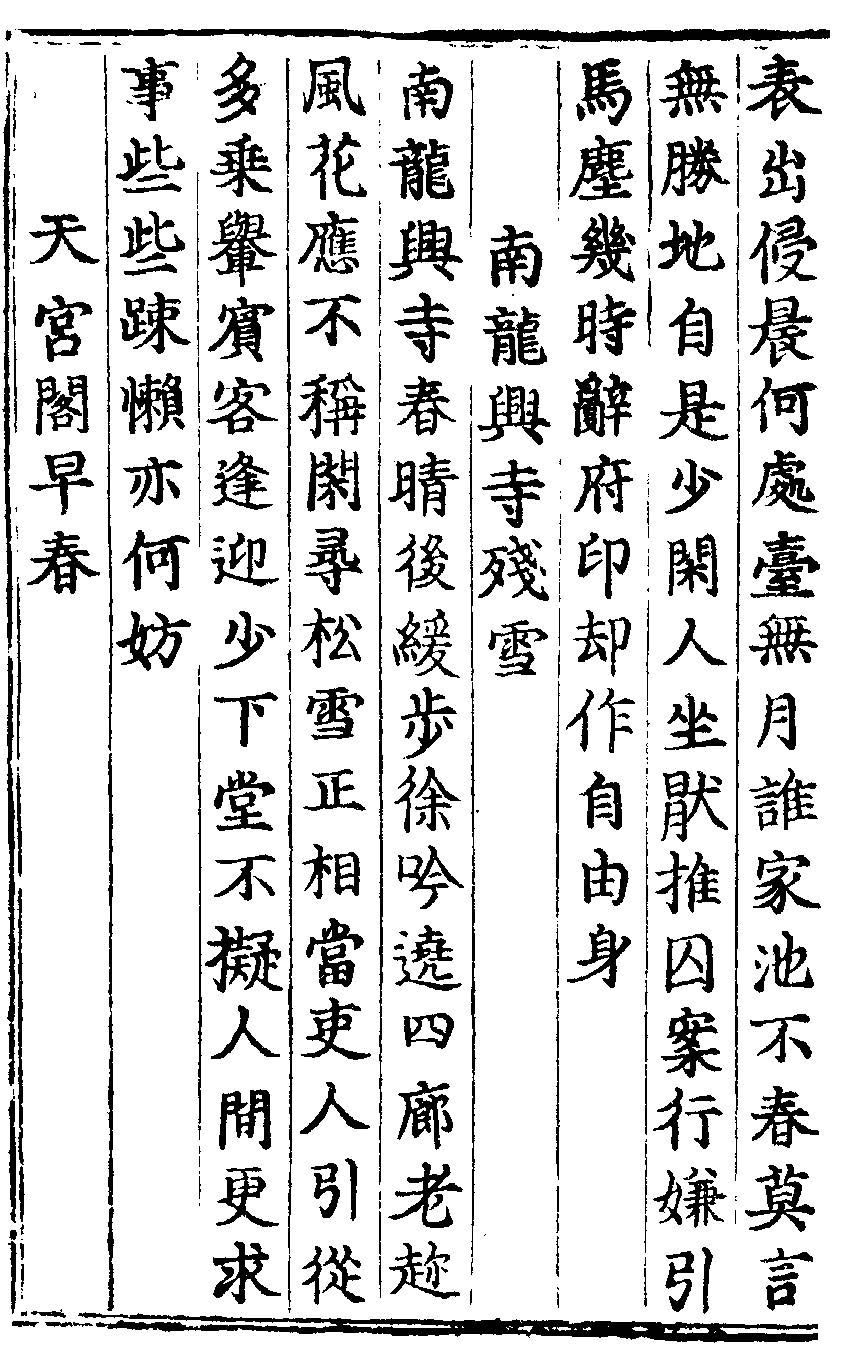 表出侵晨何處臺無月誰家池不春莫言
無勝地自是少閑人坐猒推囚案行嫌引
馬塵幾時辭府印却作自由身
南龍興寺殘雪
南龍興寺春晴後緩步徐吟遶四廊老趂
風花應不稱閑尋松雪正相當吏人引從
多乗轝賓客逢迎少下堂不擬人間更求
事些些踈懶亦何妨
天宮閣早春